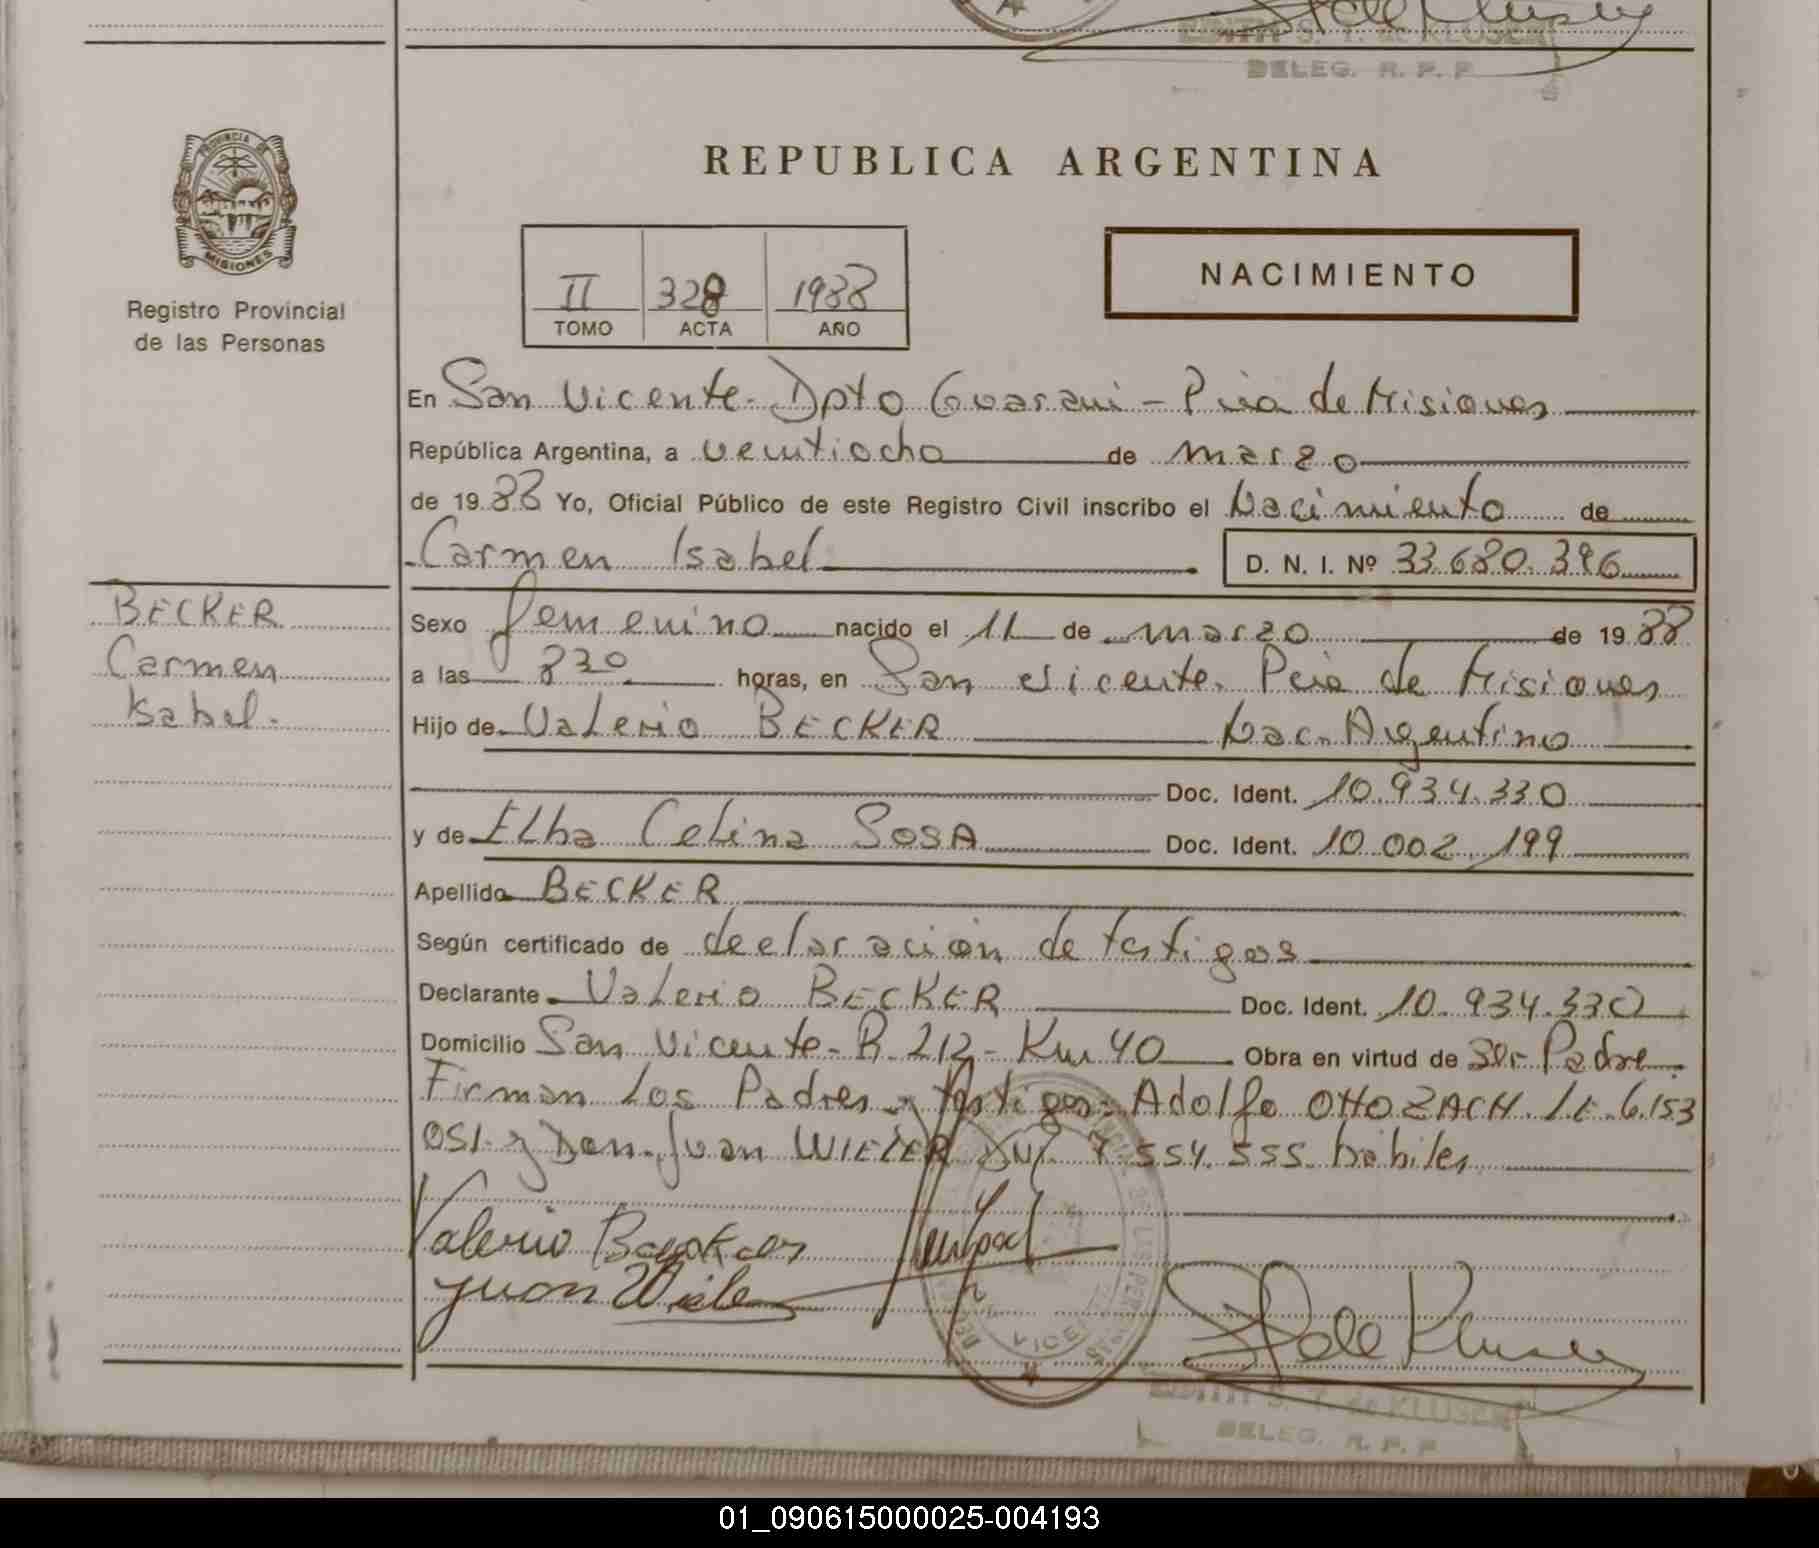 EDITH S. T. de KLUSER
DELEG. R. P. P.
PROVINCIA DE
MISIONES
Registro Provincial
de las Personas
REPUBLICA ARGENTINA
II 328 1988
TOMO ACTA AÑO
NACIMIENTO
En San Vicente - Dpto Guarani - Pcia de Misiones
República Argentina, a veintiocho de marzo
de 1988 Yo, Oficial Público de este Registro Civil inscribo el Nacimiento de
Carmen Isabel D. N. I. Nº 33.680.396
BECKER
Carmen
Isabel.
Sexo femenino nacido el 11 de marzo de 1988
a las 8 30 horas, en San Vicente. Pcia de Misiones
Hijo de Valerio BECKER Nac. Argentino
Doc. Ident. 10.934.330
y de Elba Celina SOSA Doc. Ident. 10.002.199
Apellido BECKER
Según certificado de declaración de testigos
Declarante Valerio BECKER Doc. Ident. 10.934.330
Domicilio San Vicente - R. 212 - Km 40 Obra en virtud de Ser Padre.
Firman los Padres y testigos: Adolfo OTTO ZACH. L.E. 6.153
051 y Don Juan DNI 7.554.555. hábiles
Valerio
Juan
S T de Kluser
VICE
EDITH S. T. de KLUSER
DELEG. R. P. P.
01_090615000025-004193